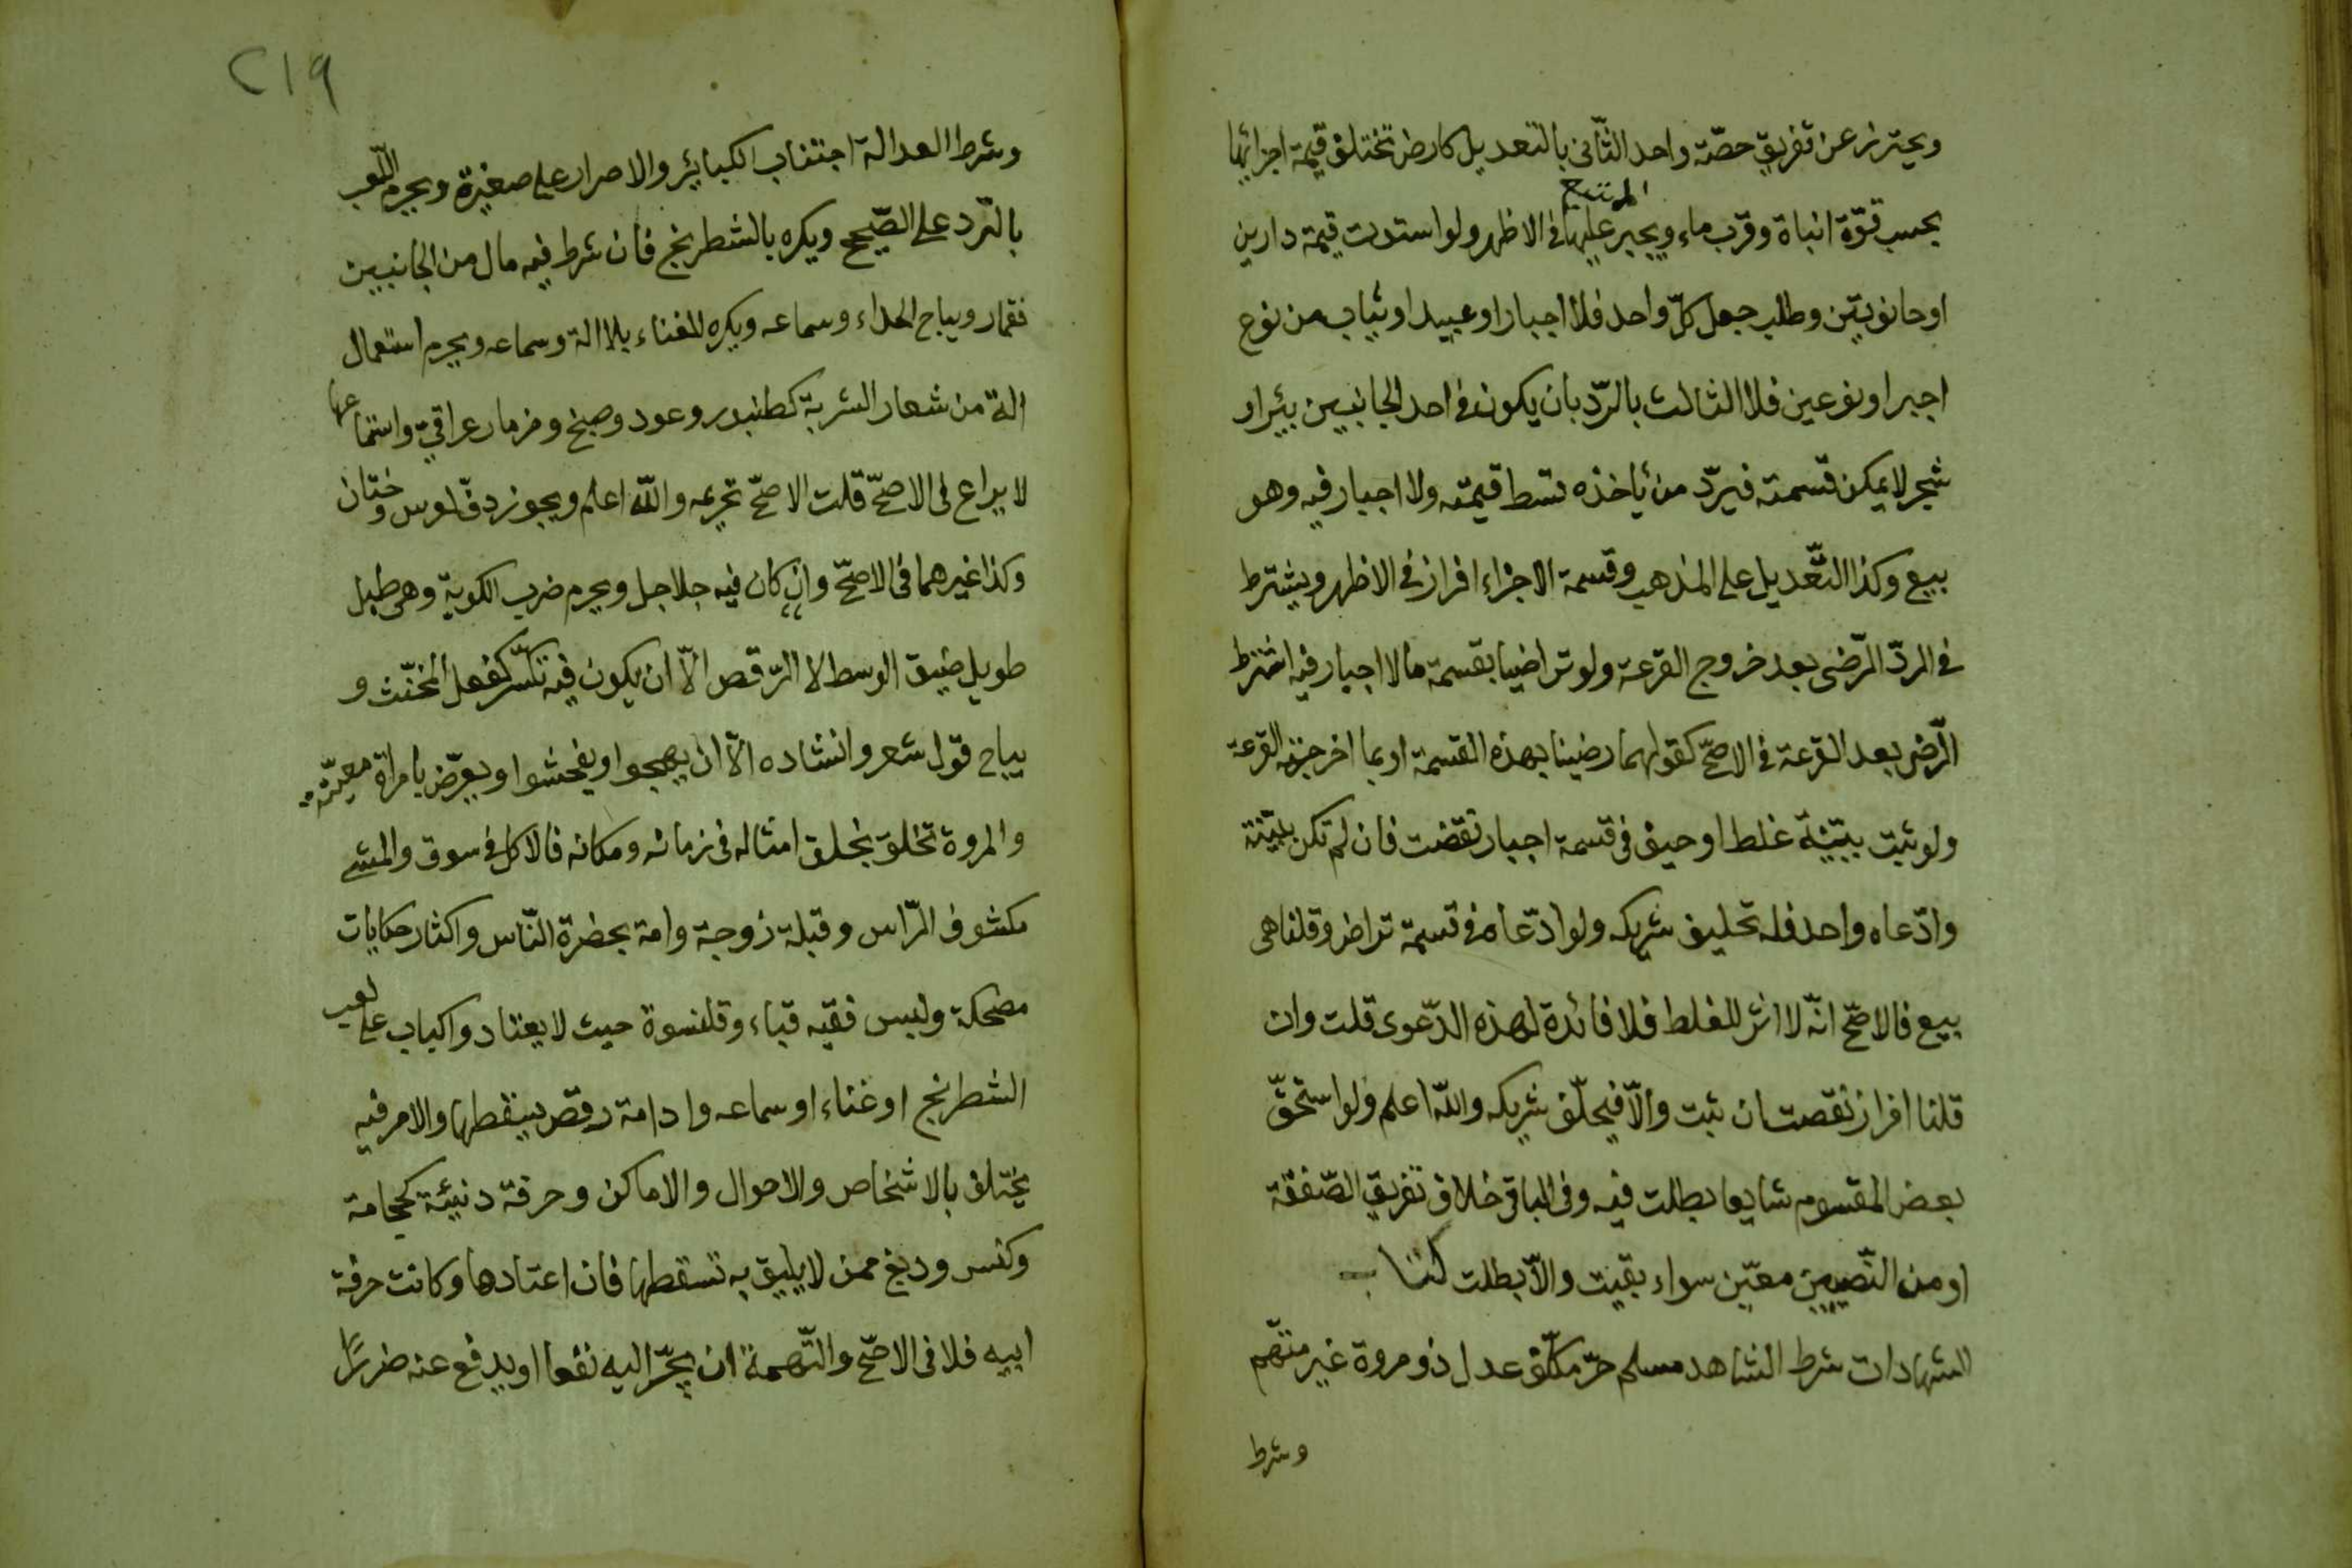 ويحترز عن تفريق حصّة واحد الثّانى بالتعديل كارض تختلف قيمة اجزائها
بحسب قوّة انباة وقرب ماء ويجبر الممتنع عليها فى الاظهر ولو استوت قيمة دارين
او حانوتين وطلب جعل كلّ واحد فلا اجبار او عبيد او ثياب من نوع
اجبر او نوعين فلا الثالث بالردّ بان يكون فى احد الجانبين بئر او
شجر لا يمكن قسمته فيردّ من يأخذه قسط قيمته ولا اجبار فيه وهو
بيع وكذا التّعديل على المذهب وقسمة الاجزاء افراز فى الاظهر ويشترط
فى الردّ الرّضى بعد خروج القرعة ولو تراضيا بقسمة ما لا اجبار فيه اشترط
الرّضى بعد القرعة فى الاصحّ كقولهما رضينا بهذه القسمة او بما اخرجته القرعة
ولو ثبت ببيّنة غلط او حيف فى قسمة اجبار نقضت فان لم تكن بيّنة
وادّعاه واحد فله تحليف شريكه ولو ادّعاه فى قسمة تراض وقلنا هى
بيع فالاصحّ انّه لا اثر للغلط فلا فائدة لهذه الدّعوى قلت وان
قلنا افراز نقصت ان ثبت والّا فيحلّف شريكه واللّه اعلم ولو استحقّ
بعض المقسوم شايعا بطلت فيه وفى الباقى خلاف تفريق الصّفقة
او من النّصيبين معيّن سواء بقيت والّا بطلت كتاب
الشهادات شرط الشاهد مسلم حرّ مكلّف عدل ذو مروة غير متّهم
وشرط
٢١٩
وشرط العدالة اجتناب الكبائر والاصرار على صغيرة ويحرم اللّعب
بالنّرد على الصّحيح ويكره بالشطرنج فان شرط فيه مال من الجانبين
فقمار ويباح الحداء وسماعه ويكره الغناء بلا الة وسماعه ويحرم استعمال
الة من شعار الشربة كطنبور وعود وصنج ومزمار عراقىّ واستماعها
لا يراع فى الاصحّ قلت الاصحّ تحريمه واللّه اعلم ويجوز دفّ لعرس وختان
وكذا غيرهما فى الاصحّ وان كان فيه جلاجل ويحرم ضرب الكوبة وهى طبل
طويل ضيق الوسط لا الرّقص الّا ان يكون فيه تكسّر كفعل المخنّث و
يباح قول شعر وانشاده الّا ان يهجوا او يفحشوا او يعرّض بامراة معيّنة
والمروة تخلق بخلق امثاله فى زمانه ومكانه فالاكل فى سوق والمشى
مكشوف الرّاس وقبلة زوجة وامة بحضرة النّاس واكثار حكايات
مضحكة ولبس فقيه قباء وقلنسوة حيث لا يعتاد واكباب على لعب
الشطرنج او غناء او سماعه وادامة رقص يسقطها والامر فيه
يختلف بالاشخاص والاحوال والاماكن وحرفة دنيئة كحجامة
وكنس ودبغ ممن لا يليق به تسقطها فان اعتادها وكانت حرفة
ابيه فلا فى الاصحّ والتّهمة ان يجرّ اليه نفعا او يدفع عنه ضررا